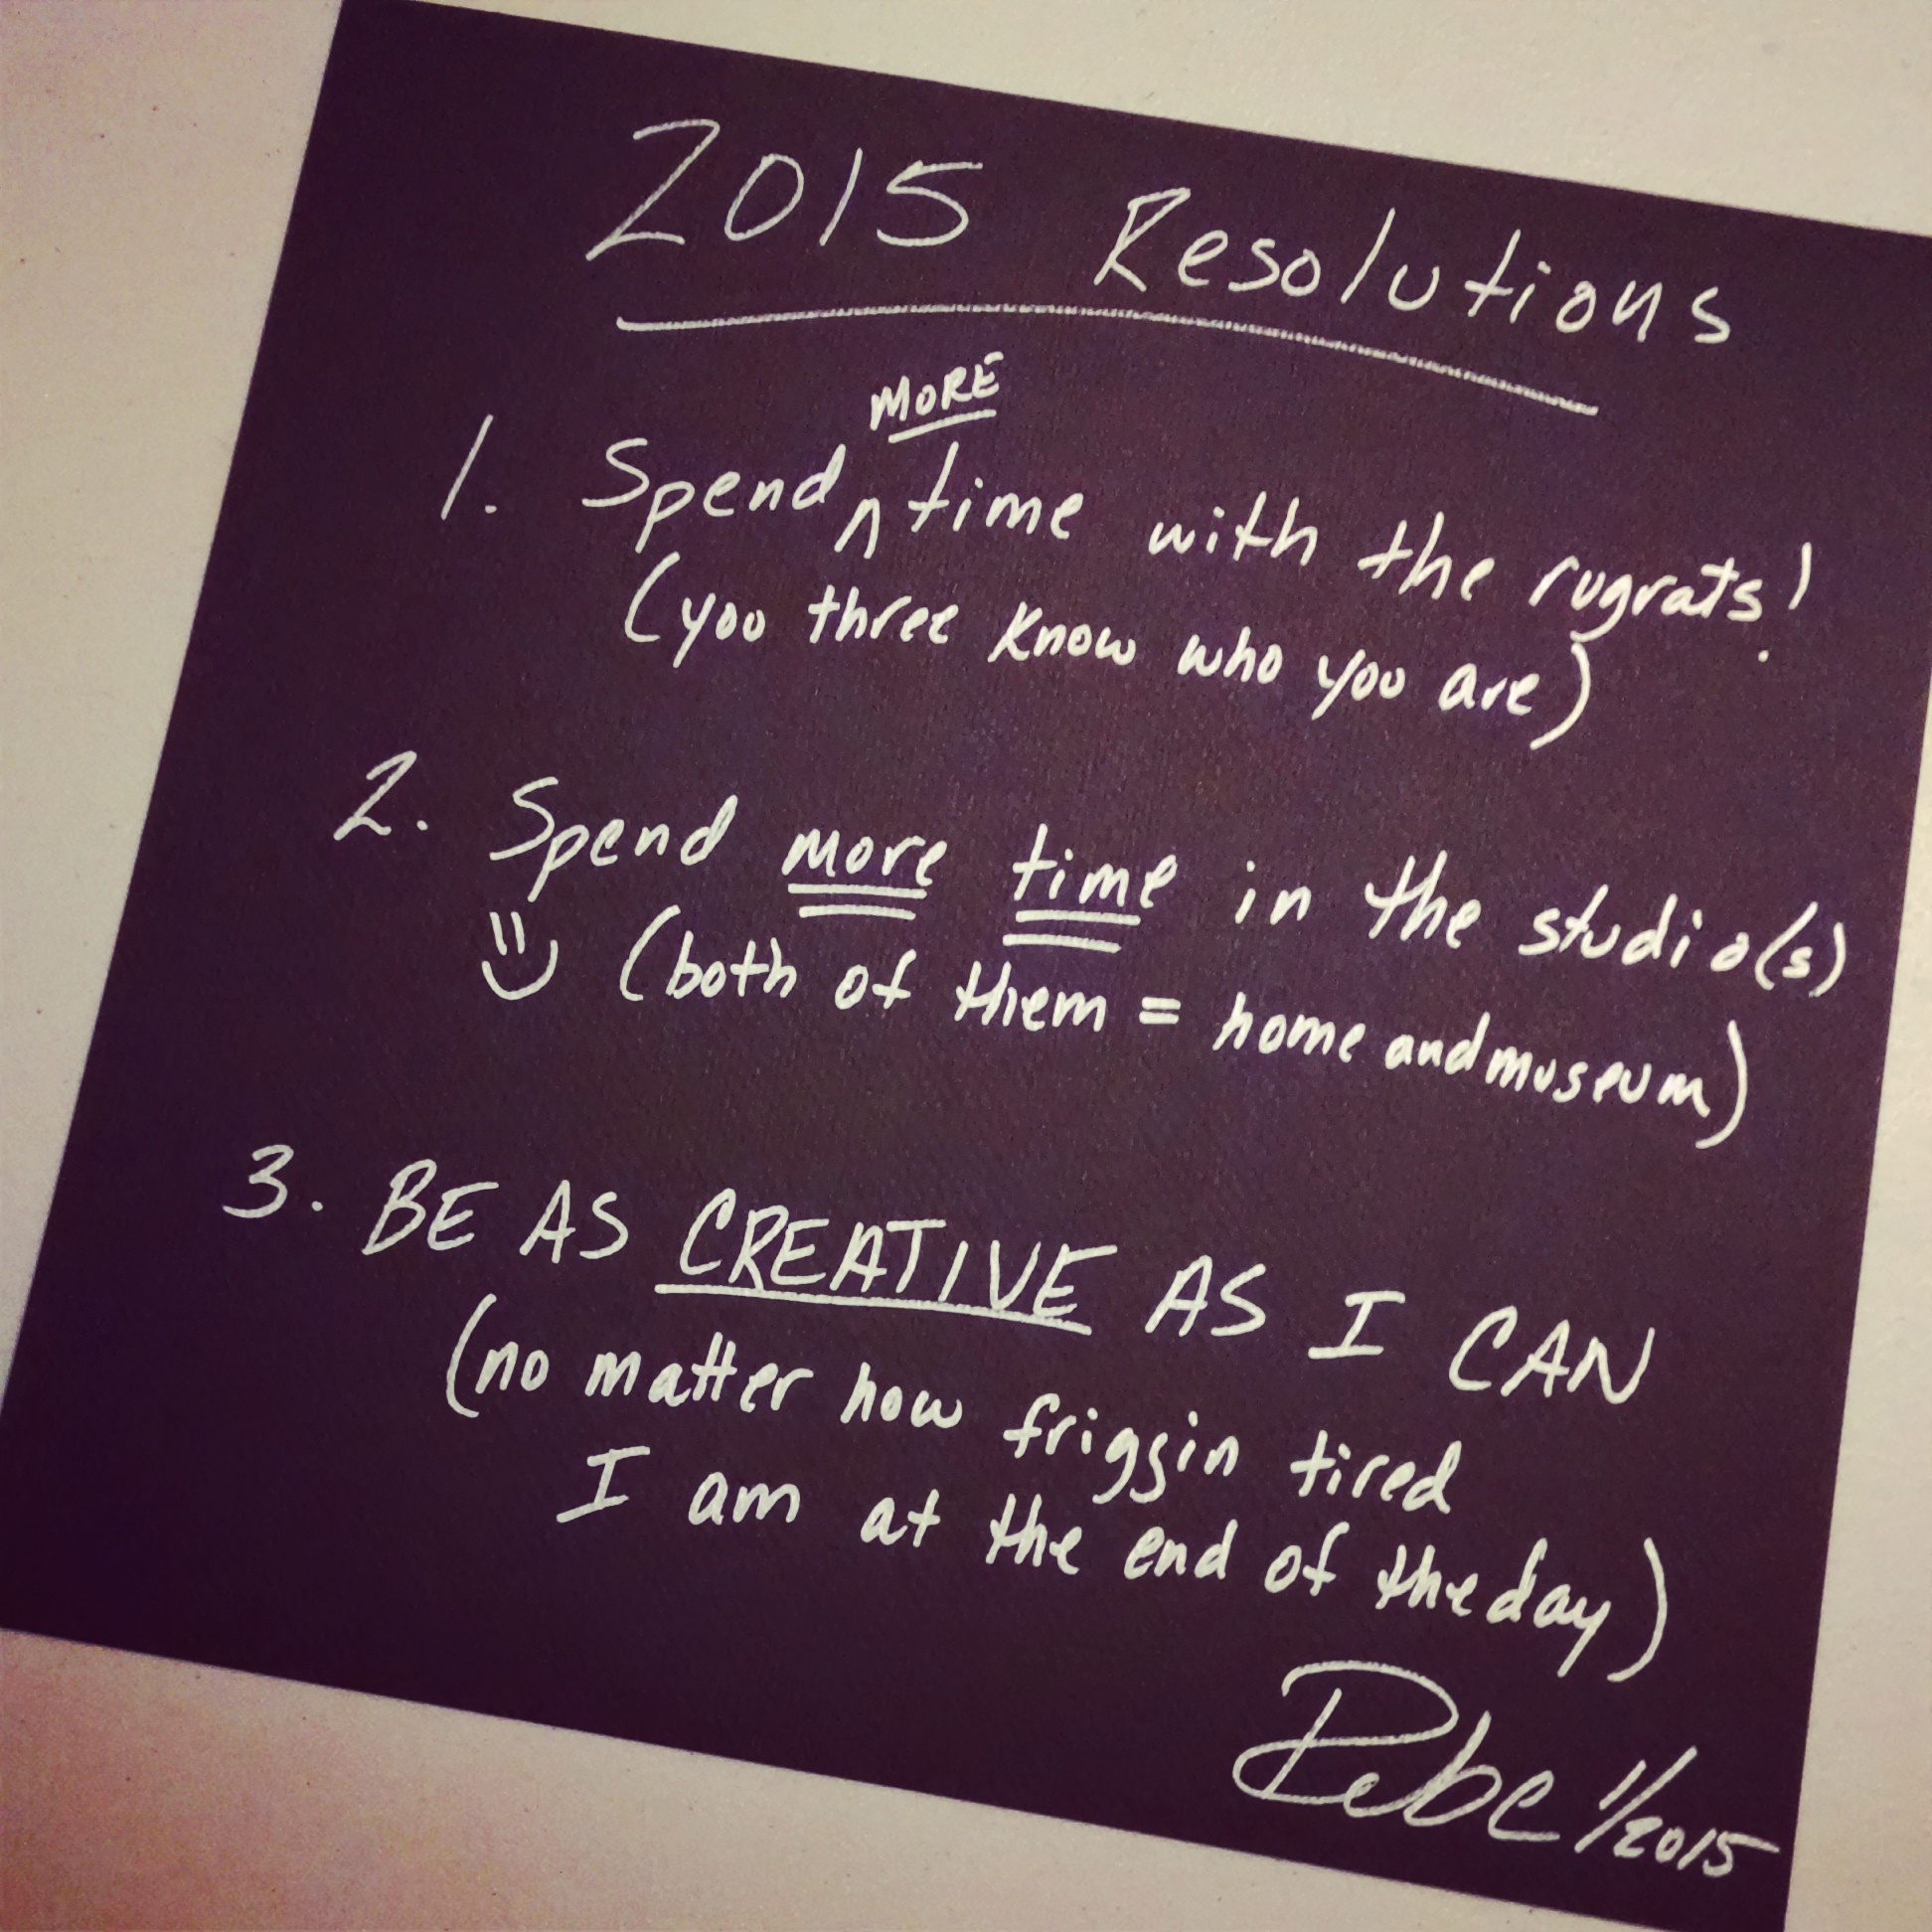 2015 Resolutions
1. Spend MORE time with the rugrats!
(you three know who you are)
2. Spend more time in the studio(s)
(both of them = home and museum)
3. BE AS CREATIVE AS I CAN
(no matter how friggin tired
I am at the end of the day)
Debc 1/2015